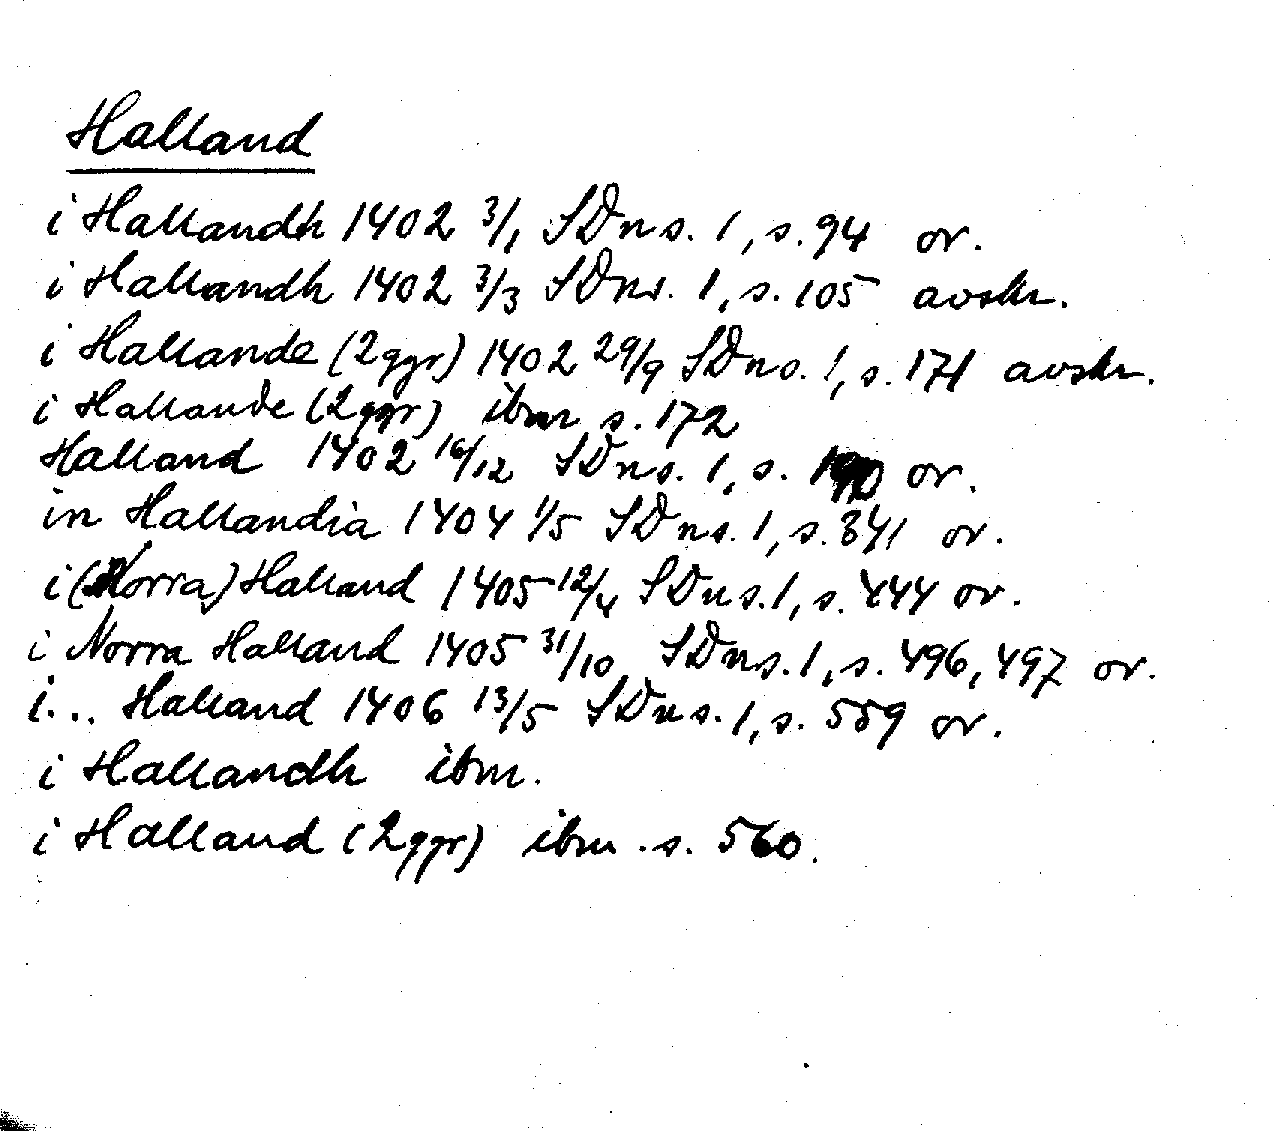 Halland
i Hallandh 1402 3/1 SDns. 1, s. 94 or.
i Hallandh 1402 3/3 SDns. 1, s. 105 avskr.
i Hallande (2ggr) 1402 29/9 SDns. 1, s. 171 avskr.
i Hallande (2ggr) ibm s. 172
Halland 1402 16/12 SDns. 1, s. or.
in Hallandia 1404 1/5 SDns. 1, s. 341 or.
i (Norra) Halland 1405 12/4 SDns. 1, s. 444 or.
i Norra Halland 1405 31/10 SDns. 1, s. 496, 497 or.
i... Halland 1406 13/5 SDns. 1, s. 559 or.
i Hallandh ibm.
i Halland (2ggr) ibm. s. 560.